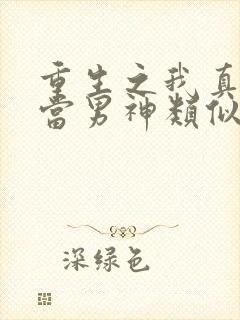 重生之我真
當男神類似
深绿色